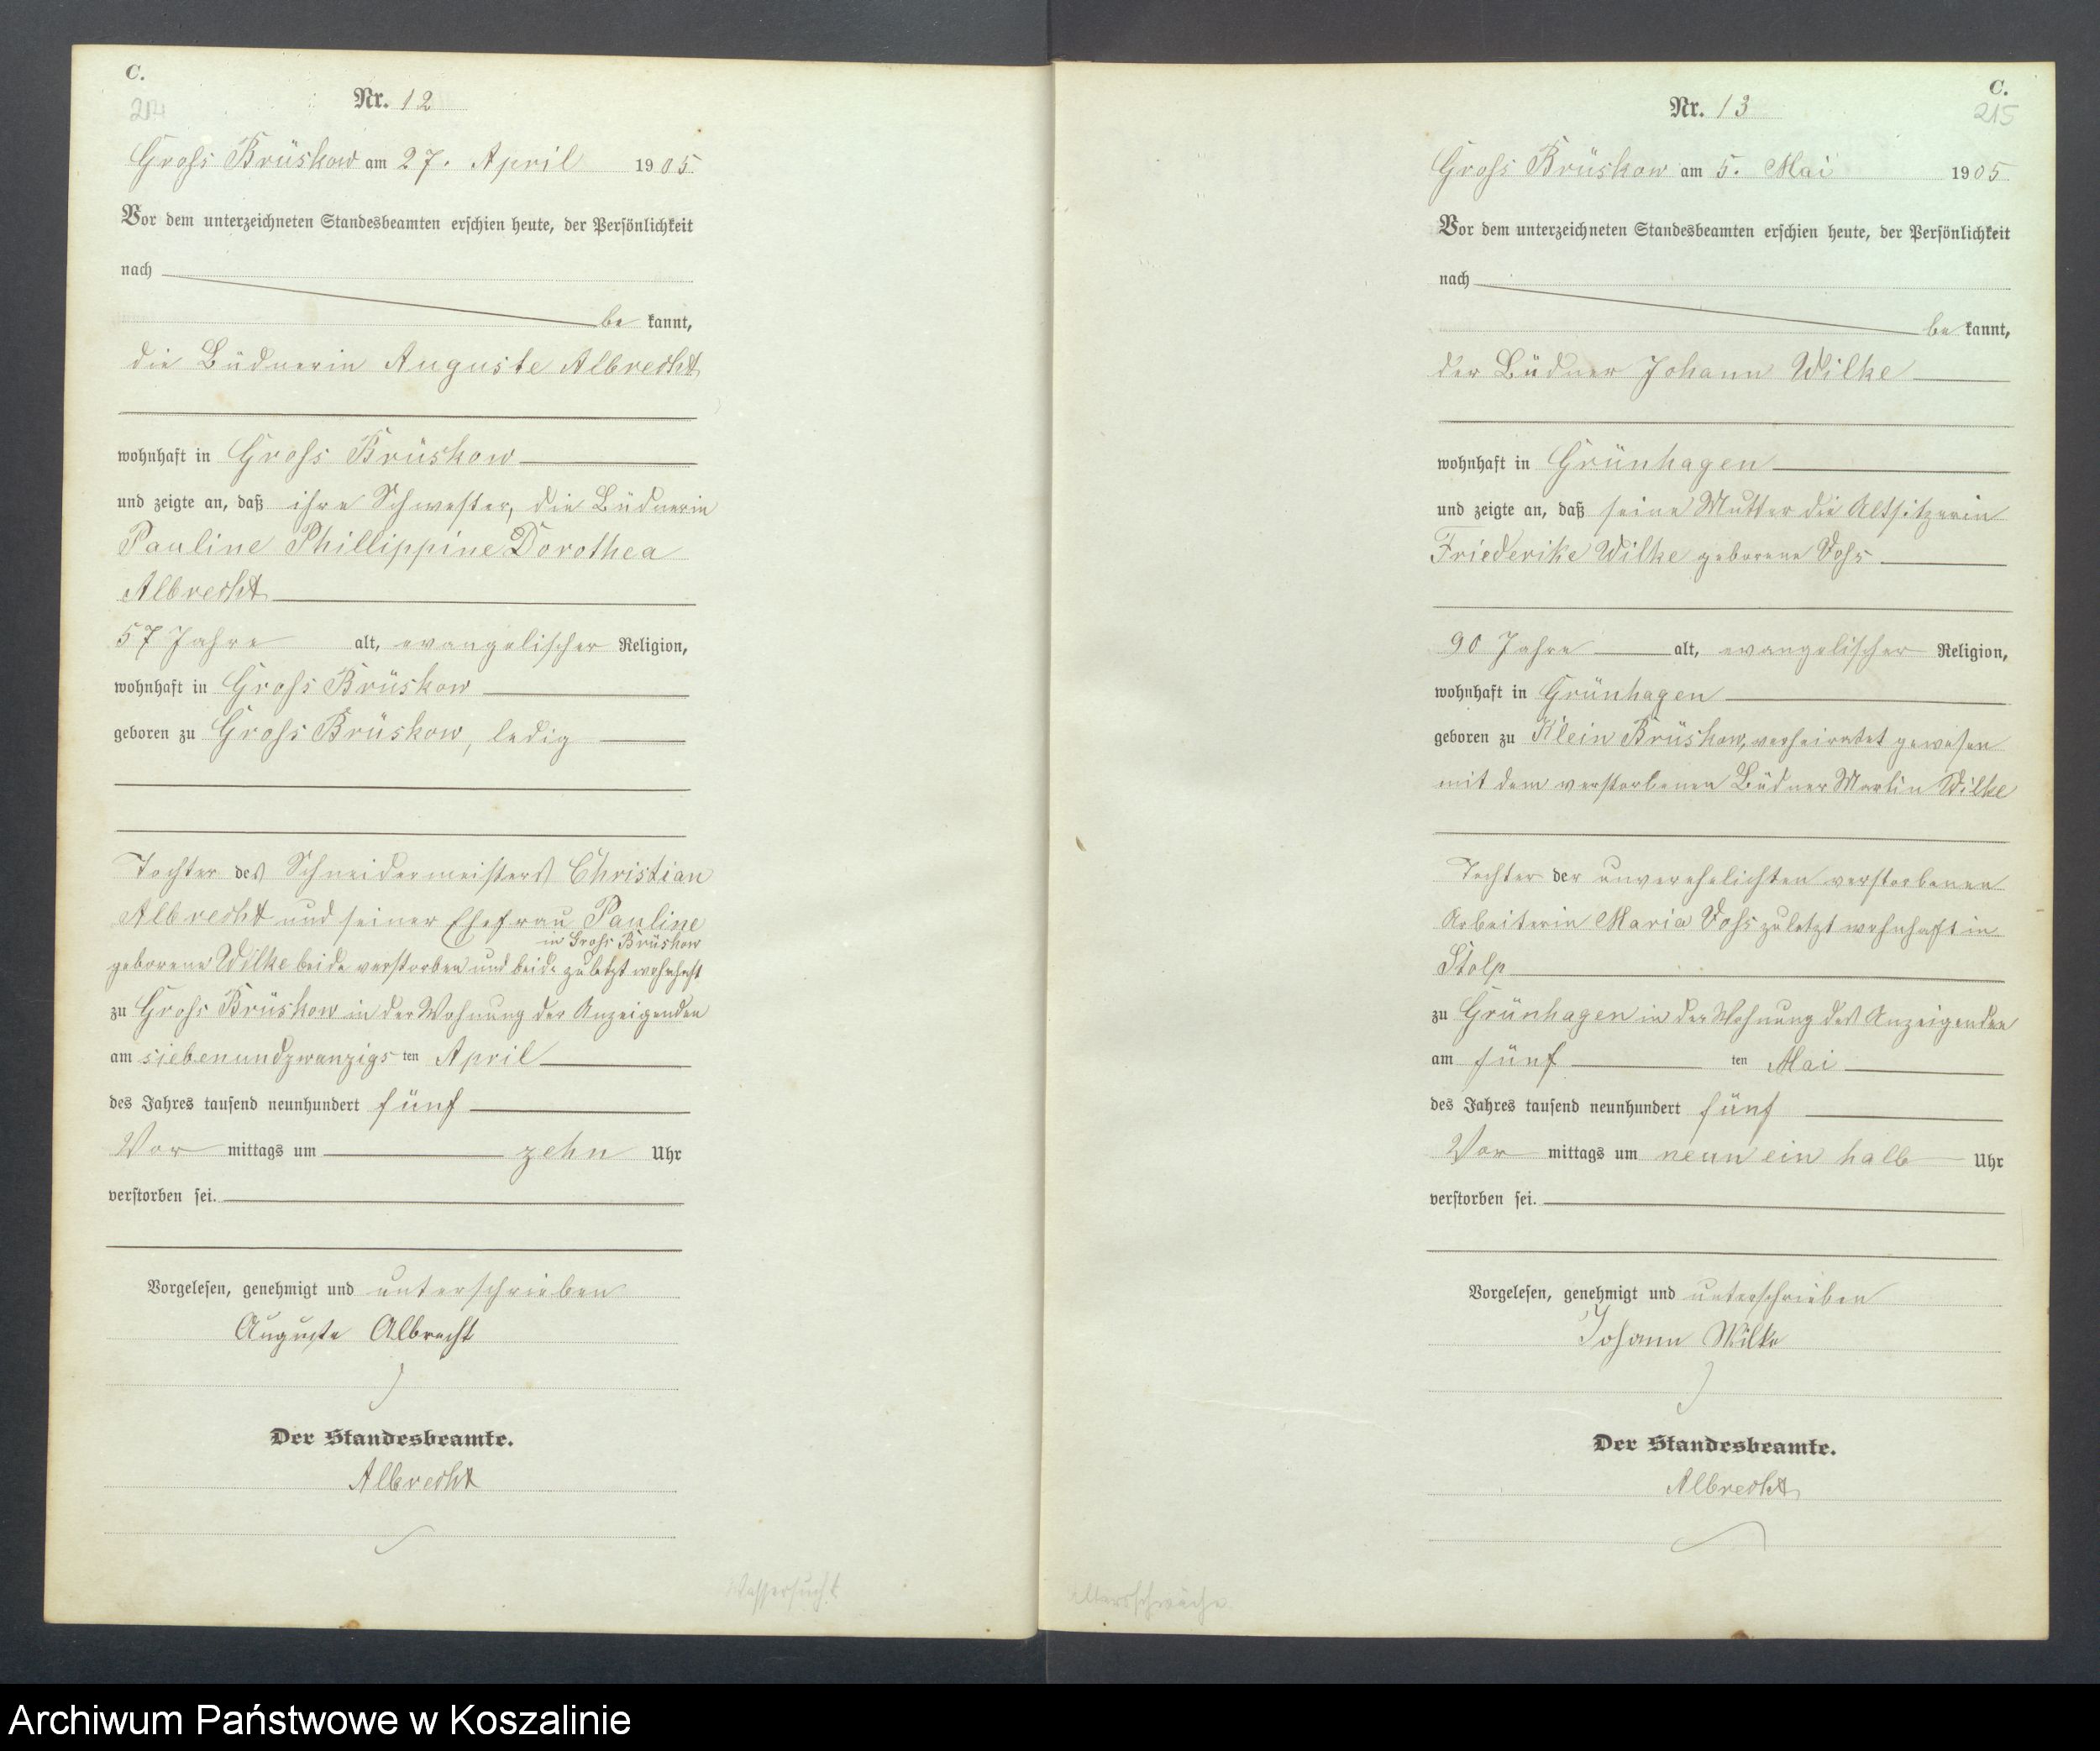 C.
214
Nr. 12
Groß Brüskow am 27. April 1905.
Vor dem unterzeichneten Standesbeamten erschien heute, der Persönlichkeit
nach
be kannt,
die Büdnerin Auguste Albrecht
wohnhaft in Groß Brüskow
und zeigte an, daß ihre Schwester, die Büdnerin
Pauline Phillippine Dorothea
Albrecht
57 Jahre alt, evangelischer Religion,
wohnhaft in Groß Brüskow
geboren zu Groß Brüskow, ledig
Tochter des Schneidermeisters Christian
Albrecht und seiner Ehefrau Pauline
in Groß Brüskow
geborene Wilke beide verstorben und beide zuletzt wohnhaft
zu Groß Brüskow in der Wohnung der Anzeigenden
am siebenundzwanzigs ten April
des Jahres tausend neunhundert fünf
Vor mittags um zehn Uhr
verstorben sei.
Vorgelesen, genehmigt und unterschrieben
Auguste Albrecht
Der Standesbeamte.
Albrecht
Wassersucht
C.
215
Nr. 13
Groß Brüskow am 5. Mai 1905
Vor dem unterzeichneten Standesbeamten erschien heute, der Persönlichkeit
nach
be kannt,
der Büdner Johann Wilke
wohnhaft in Grünhagen
und zeigte an, daß seine Mutter die Altsitzerin
Friederike Wilke geborene Voß
90 Jahre alt, evangelischer Religion,
wohnhaft in Grünhagen
geboren zu Klein Brüskow, verheiratet gewesen
mit dem verstorbenen Büdner Martin Wilke
Tochter der unverehelichten verstorbenen
Arbeiterin Maria Voß zuletzt wohnhaft in
Stolp
zu Grünhagen in der Wohnung des Anzeigenden
am fünf ten Mai
des Jahres tausend neunhundert fünf
Vor mittags um neun ein halb Uhr
verstorben sei.
Vorgelesen, genehmigt und unterschrieben
Johann Wilke
Der Standesbeamte.
Albrecht
Altersschwäche
Archiwum Państwowe w Koszalinie